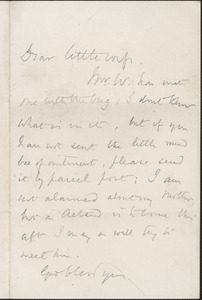 Dear little wife,
Mr W. has met
me with the bag, I don't know
what is in it, but if you
have not sent the little
box of ointment, please send
it by parcel post; I am
not alarmed about my Mother,
but a is to come this
aft I may or will try to
meet him.
God bless you